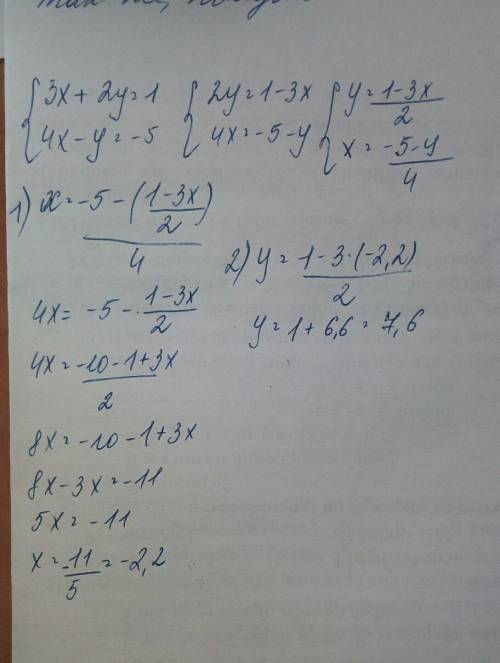 так же, 
{3x + 2y = 1 {2y = 1 - 3x {y = (1 - 3x)/2
{4x - y = -5 {4x = -5 - y {x = (-5 - y)/4
1) x = (-5 - ((1 - 3x)/2))/4
4x = -5 - (1 - 3x)/2
4x = (-10 - 1 + 3x)/2
8x = -10 - 1 + 3x
8x - 3x = -11
5x = -11
x = -11/5 = -2,2
2) y = (1 - 3·(-2,2))/2
y = 1 + 6,6 = 7,6